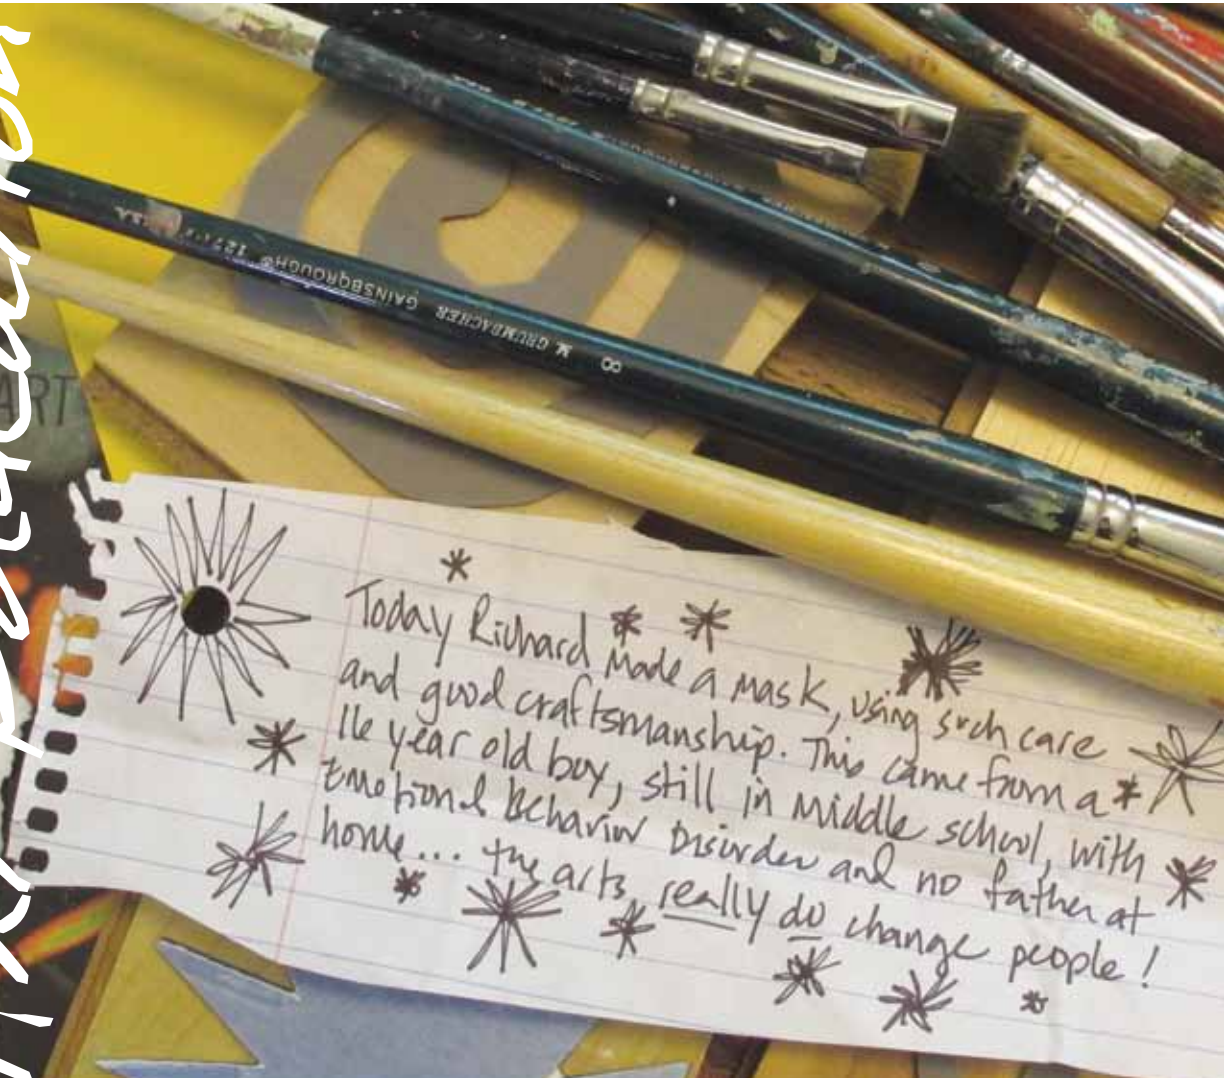 ART
M. GRUMBACHER GAINSBOROUGH® 1271
8
Today Richard made a mask, using such care
and good craftsmanship. This came from a
16 year old boy, still in middle school, with
Emotional Behavior Disorder and no father at
home... the arts really do change people!